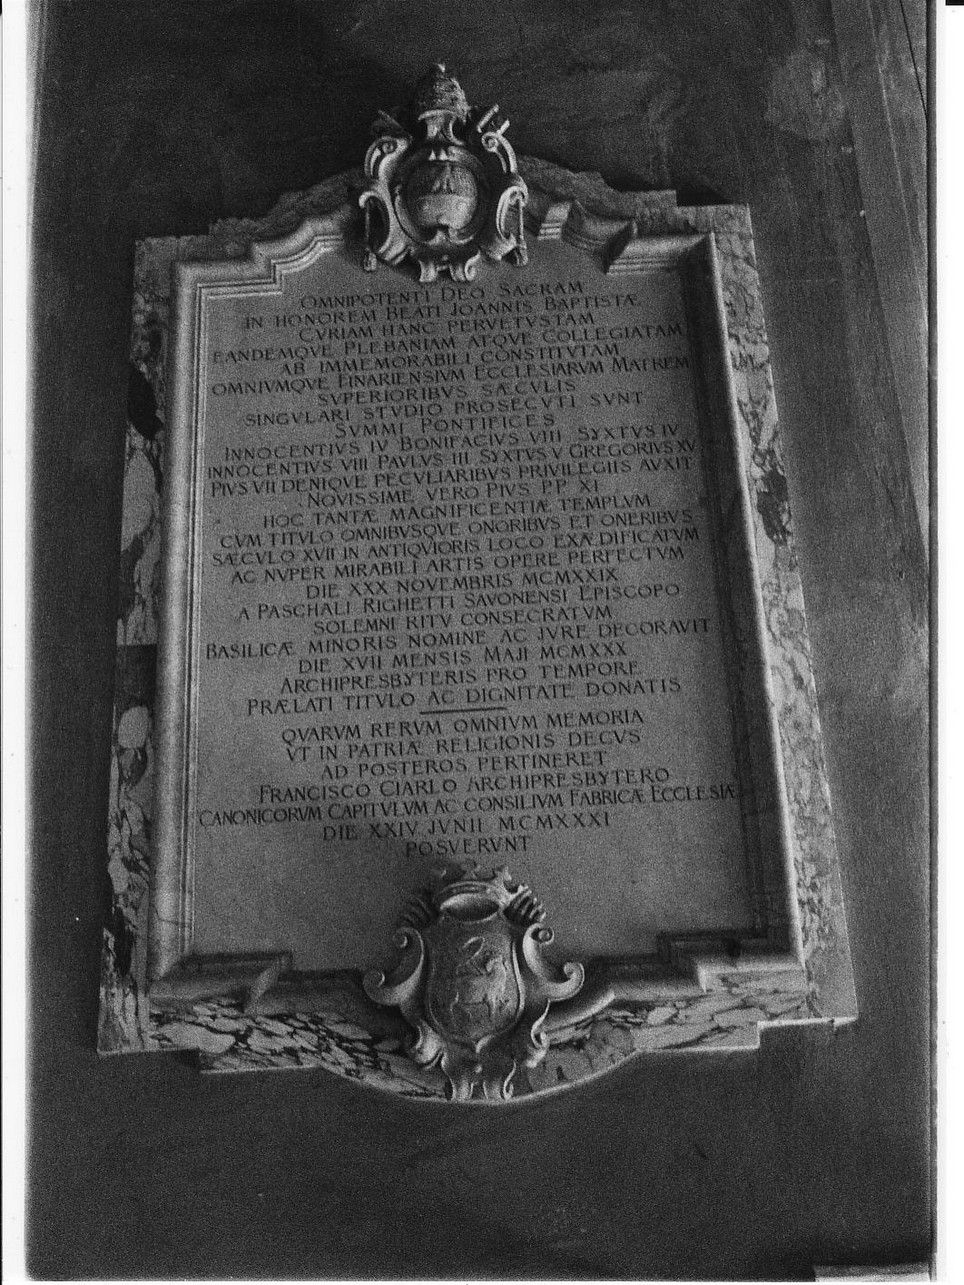 OMNIPOTENTI DEO SACRAM
IN HONOREM BEATI JOANNIS BAPTISTÆ
CVRIAM HANC PERVETVSTAM
EANDEMQVE PLEBANIAM ATQVE COLLEGIATAM
AB IMMEMORABILI CONSTITVTAM
OMNIVMQVE FINARIENSIVM ECCLESIARVM MATREM
SVPERIORIBVS SÆCVLIS
SINGVLARI STVDIO PROSECVTI SVNT
SVMMI PONTIFICES
INNOCENTIVS IV BONIFACIVS VIII SYXTVS IV
INNOCENTIVS VIII PAVLVS III SYXTVS V GREGORIVS XV
PIVS VII DENIQVE PECVLIARIBVS PRIVILEGIIS AVXIT
NOVISSIME VERO PIVS PP XI
HOC TANTÆ MAGNIFICENTIÆ TEMPLVM
CVM TITVLO OMNIBVSQVE ONORIBVS ET ONERIBVS
SÆCVLO XVII IN ANTIQVIORIS LOCO EXÆDIFICATVM
AC NVPER MIRABILI ARTIS OPERE PERFECTVM
DIE XXX NOVEMBRIS MCMXXIX
A PASCHALI RIGHETTI SAVONENSI EPISCOPO
SOLEMNI RITV CONSECRATVM
BASILICÆ MINORIS NOMINE AC JVRE DECORAVIT
DIE XVII MENSIS MAJI MCMXXX
ARCHIPRESBYTERIS PRO TEMPORE
PRÆLATI TITVLO AC DIGNITATE DONATIS
QVARVM RERVM OMNIVM MEMORIA
VT IN PATRIÆ RELIGIONIS DECVS
AD POSTEROS PERTINERET
FRANCISCO CIARLO ARCHIPRESBYTERO
CANONICORVM CAPITVLVM AC CONSILIVM FABRICÆ ECCLESIÆ
DIE XXIV JVNII MCMXXXI
POSVERVNT